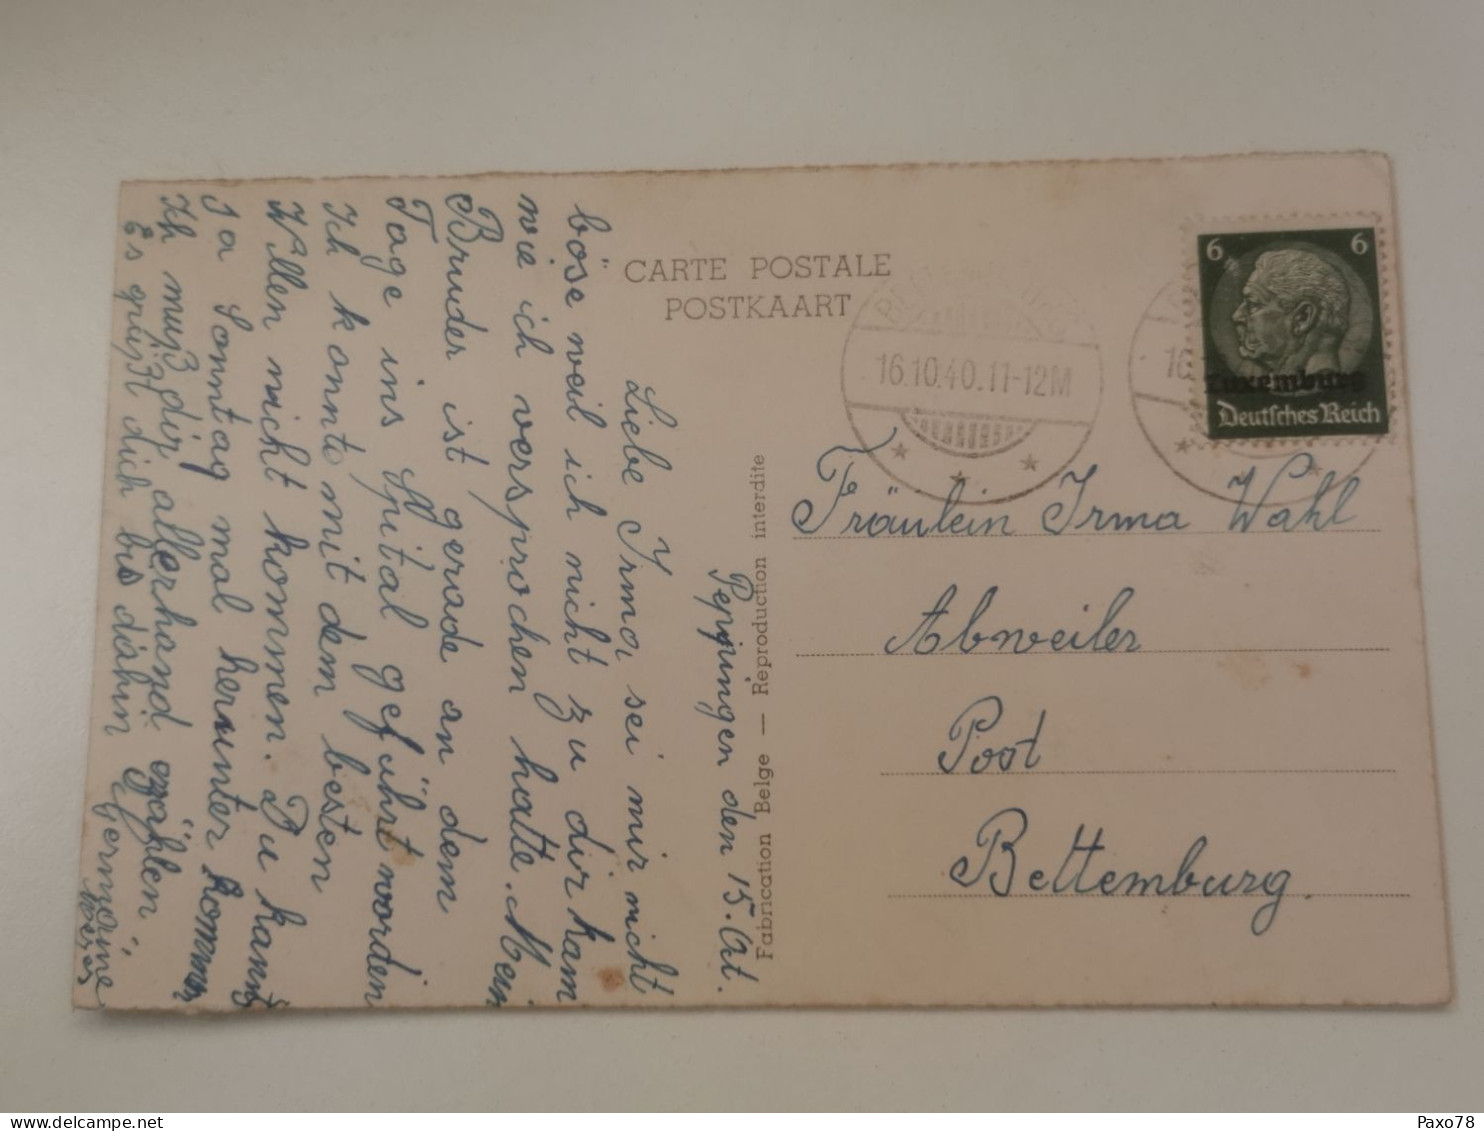 CARTE POSTALE
POSTKAART
16.10.40.11-12M
6 6
Luxemburg
Deutsches Reich
Fabrication Belge — Reproduction interdite
Pepingen den 15. Okt.
Liebe Irma sei mir nicht
böse weil ich nicht zu dir kam
wie ich versprochen hatte. Mein
Bruder ist gerade an dem
Tage ins Spital geführt worden
Ich konnte mit dem besten
Willen nicht kommen. Du kannst
ja Sonntag mal herunter kommen
Ich muß dir allerhand erzählen.
Es grüßt dich bis dahin Germaine
Fräulein Irma Wahl
Abweiler
Post
Bettemburg.
Paxo78